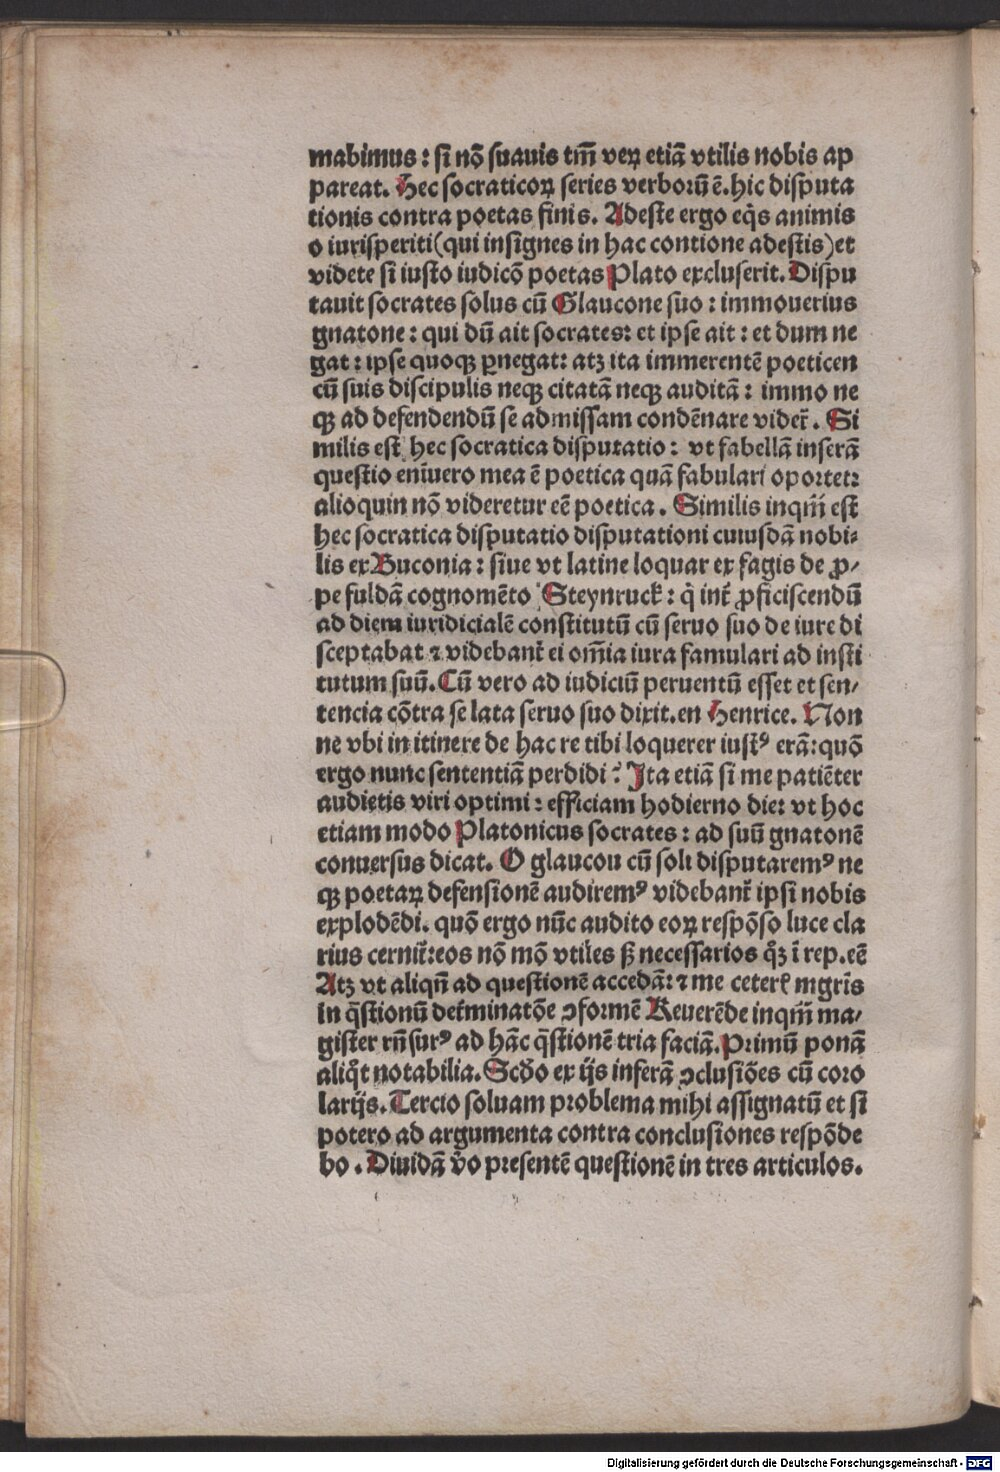 mabimus : si nō suauis tm̄ veꝝ etiā vtilis nobis ap
pareat. Hec socraticoꝝ series verborū ē. hic disputa
tionis contra poetas finis. Adeste ergo eq̄s animis
o iurisperiti (qui insignes in hac contione adestis) et
videte si iusto iudicō poetas Plato excluserit. Dispu
tauit socrates solus cū Glaucone suo : immouerius
gnatone : qui dū ait socrates: et ipse ait : et dum ne
gat : ipse quoqꝫ ꝑnegat: atqꝫ ita immerentē poeticen
cū suis discipulis neqꝫ citatā neqꝫ auditā : immo ne
qꝫ ad defendendū se admissam condēnare videt̄. Si
milis est hec socratica disputatio : vt fabellā inserā
questio enīuero mea ē poetica quā fabulari oportet:
alioquin nō videretur eē poetica. Similis inqm̄ est
hec socratica disputatio disputationi cuiusdā nobi-
lis ex Buconia : siue vt latine loquar ex fagis de ꝓ-
pe fuldā cognomēto Steynruck : q̇ int̄ ꝓficiscendū
ad diem iuridicialē constitutū cū seruo suo de iure di
sceptabat ⁊ videbant̄ ei om̄ia iura famulari ad insti
tutum suū. Cū vero ad iudiciū peruentū esset et sen-
tencia cōtra se lata seruo suo dixit. en Henrice. Non
ne vbi in itinere de hac re tibi loquerer iustꝰ erā: quō
ergo nunc sententiā perdidi ? Ita etiā si me patiēter
audietis viri optimi : efficiam hodierno die: vt hoc
etiam modo Platonicus socrates : ad suū gnatonē
conuersus dicat. O glaucou cū soli disputaremꝰ ne
qꝫ poetaꝝ defensionē audiremꝰ videbant̄ ipsi nobis
explodēdi. quō ergo nūc audito eoꝝ respōso luce cla
rius cernit̄: eos nō mō vtiles sꝫ necessarios qꝫ ī rep. eē
Atqꝫ vt aliqn̄ ad questionē accedā: ⁊ me ceter̄ mgr̄is
in q̄stionū det̄minatōe ꝯformē Reuerēde inqm̄ ma-
gister rn̄surꝰ ad hāc q̄stionē tria faciā. Primū ponā
aliq̄t notabilia. Scd̄o ex ijs inferā ꝯclusiōes cū coro
larijs. Tercio soluam problema mihi assignatū et si
potero ad argumenta contra conclusiones respōde
bo. Diuidā v̄o presentē questionē in tres articulos.
Digitalisierung gefördert durch die Deutsche Forschungsgemeinschaft - DFG